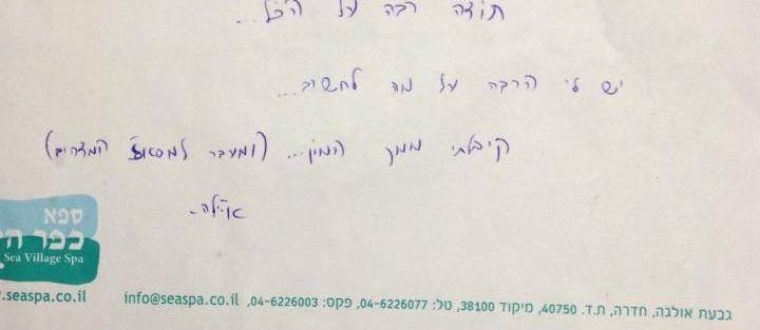 תודה רבה על הכל...
יש לי הרבה על מה לחשוב...
קיבלתי ממך המון... (ומעבר למסאג' המדהים)
איילה.
ספא
כפר הי
Sea Village Spa
.seaspa.co.il
גבעת אולגה, חדרה, ת.ד. 40750, מיקוד 38100, טל: 04-6226077, פקס: 04-6226003, info@seaspa.co.il